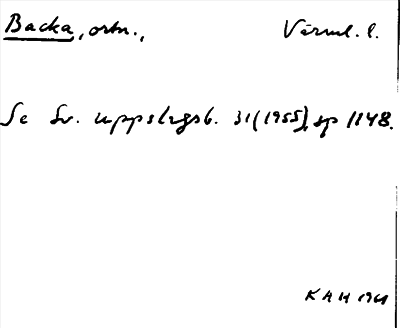 Backa, ortn., Värml. l.
Se Sv. uppslagsb. 31(1955), sp 1148.
K A H 1961